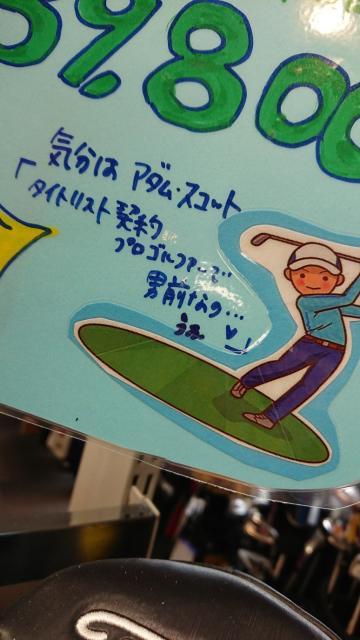 9,800
気分は アダム・スコット
「タイトリスト契約
プロゴルファーで
男前なの…
うふ♡」